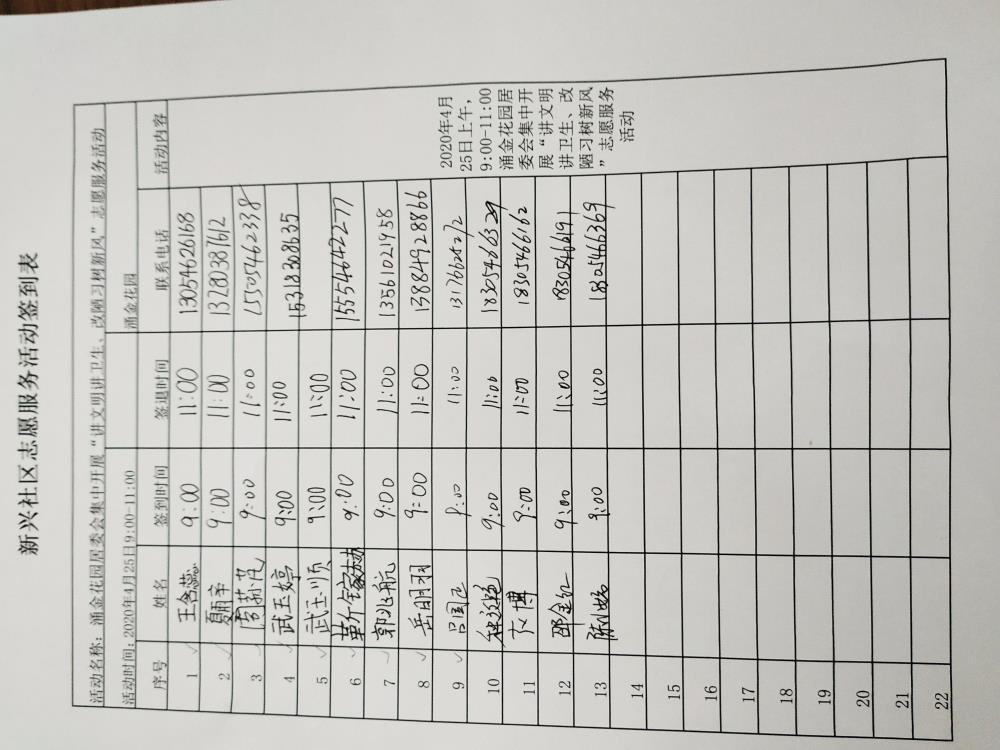 新兴社区志愿服务活动签到表
活动名称：涌金花园居委会集中开展“讲文明讲卫生、改陋习树新风”志愿服务活动
活动时间：2020年4月25日9:00-11:00 涌金花园
序号 姓名 签到时间 签退时间 联系电话 活动内容
1 王含蕊 9:00 11:00 13054626168
2 夏雨辛 9:00 11:00 13280387612
3 9:00 11:00 15505462338
4 武玉婷 9:00 11:00 15318308635
5 武玉顺 9:00 11:00
6 9:00 11:00 15554642277
7 郭兆航 9:00 11:00 13561021958
8 岳明羽 9:00 11:00 13884928866
9 吕周正 8:00 11:00
10 9:00 11:00 18305466329
11 博 9:00 11:00 18305466162
12 邵金红 9:00 11:00
13 9:00 11:00
14
15
16
17
18
19
20
21
22
2020年4月
25日上午，
9:00-11:00
涌金花园居
委会集中开
展“讲文明
讲卫生、改
陋习树新风
”志愿服务
活动